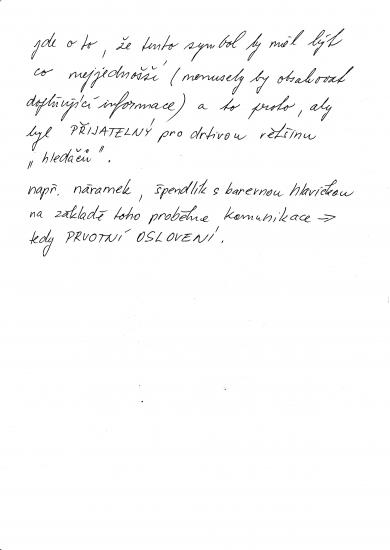 jde o to, že tento symbol by měl být
co nejjednošší (nemusely by obsahovat
doplňující informace) a to proto, aby
byl PŘIJATELNÝ pro drtivou většinu
„hledačů".
např. náramek, špendlík s barevnou hlavičkou
na základě toho proběhne komunikace ⇒
tedy PRVOTNÍ OSLOVENÍ.